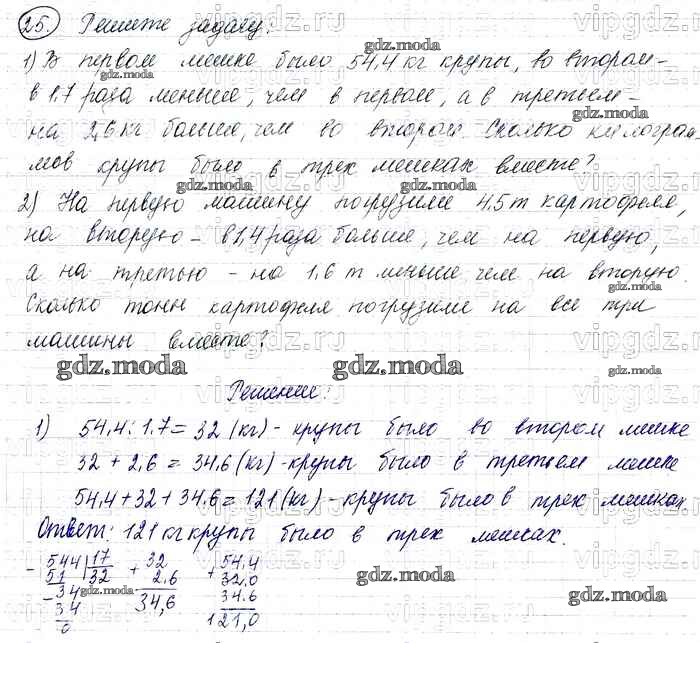 25. Решите задачу:
1) В первом мешке было 54,4 кг крупы, во втором -
в 1,7 раза меньше, чем в первом, а в третьем -
на 2,6 кг больше, чем во втором. Сколько килограм-
мов крупы было в трех мешках вместе?
2) На первую машину погрузили 4,5 т картофеля,
на вторую - в 1,4 раза больше, чем на первую,
а на третью - на 1,6 т меньше чем на вторую.
Сколько тонн картофеля погрузили на все три
машины вместе?
Решение:
1) 54,4 : 1,7 = 32 (кг) - крупы было во втором мешке
32 + 2,6 = 34,6 (кг) - крупы было в третьем мешке
54,4 + 32 + 34,6 = 121 (кг) - крупы было в трех мешках.
Ответ: 121 кг крупы было в трех мешках.
- 544 | 17 + 32 + 54,4
51 32 2,6 32,0
- 34 34,6 34,6
34 121,0
0
gdz.moda
vipgdz.ru